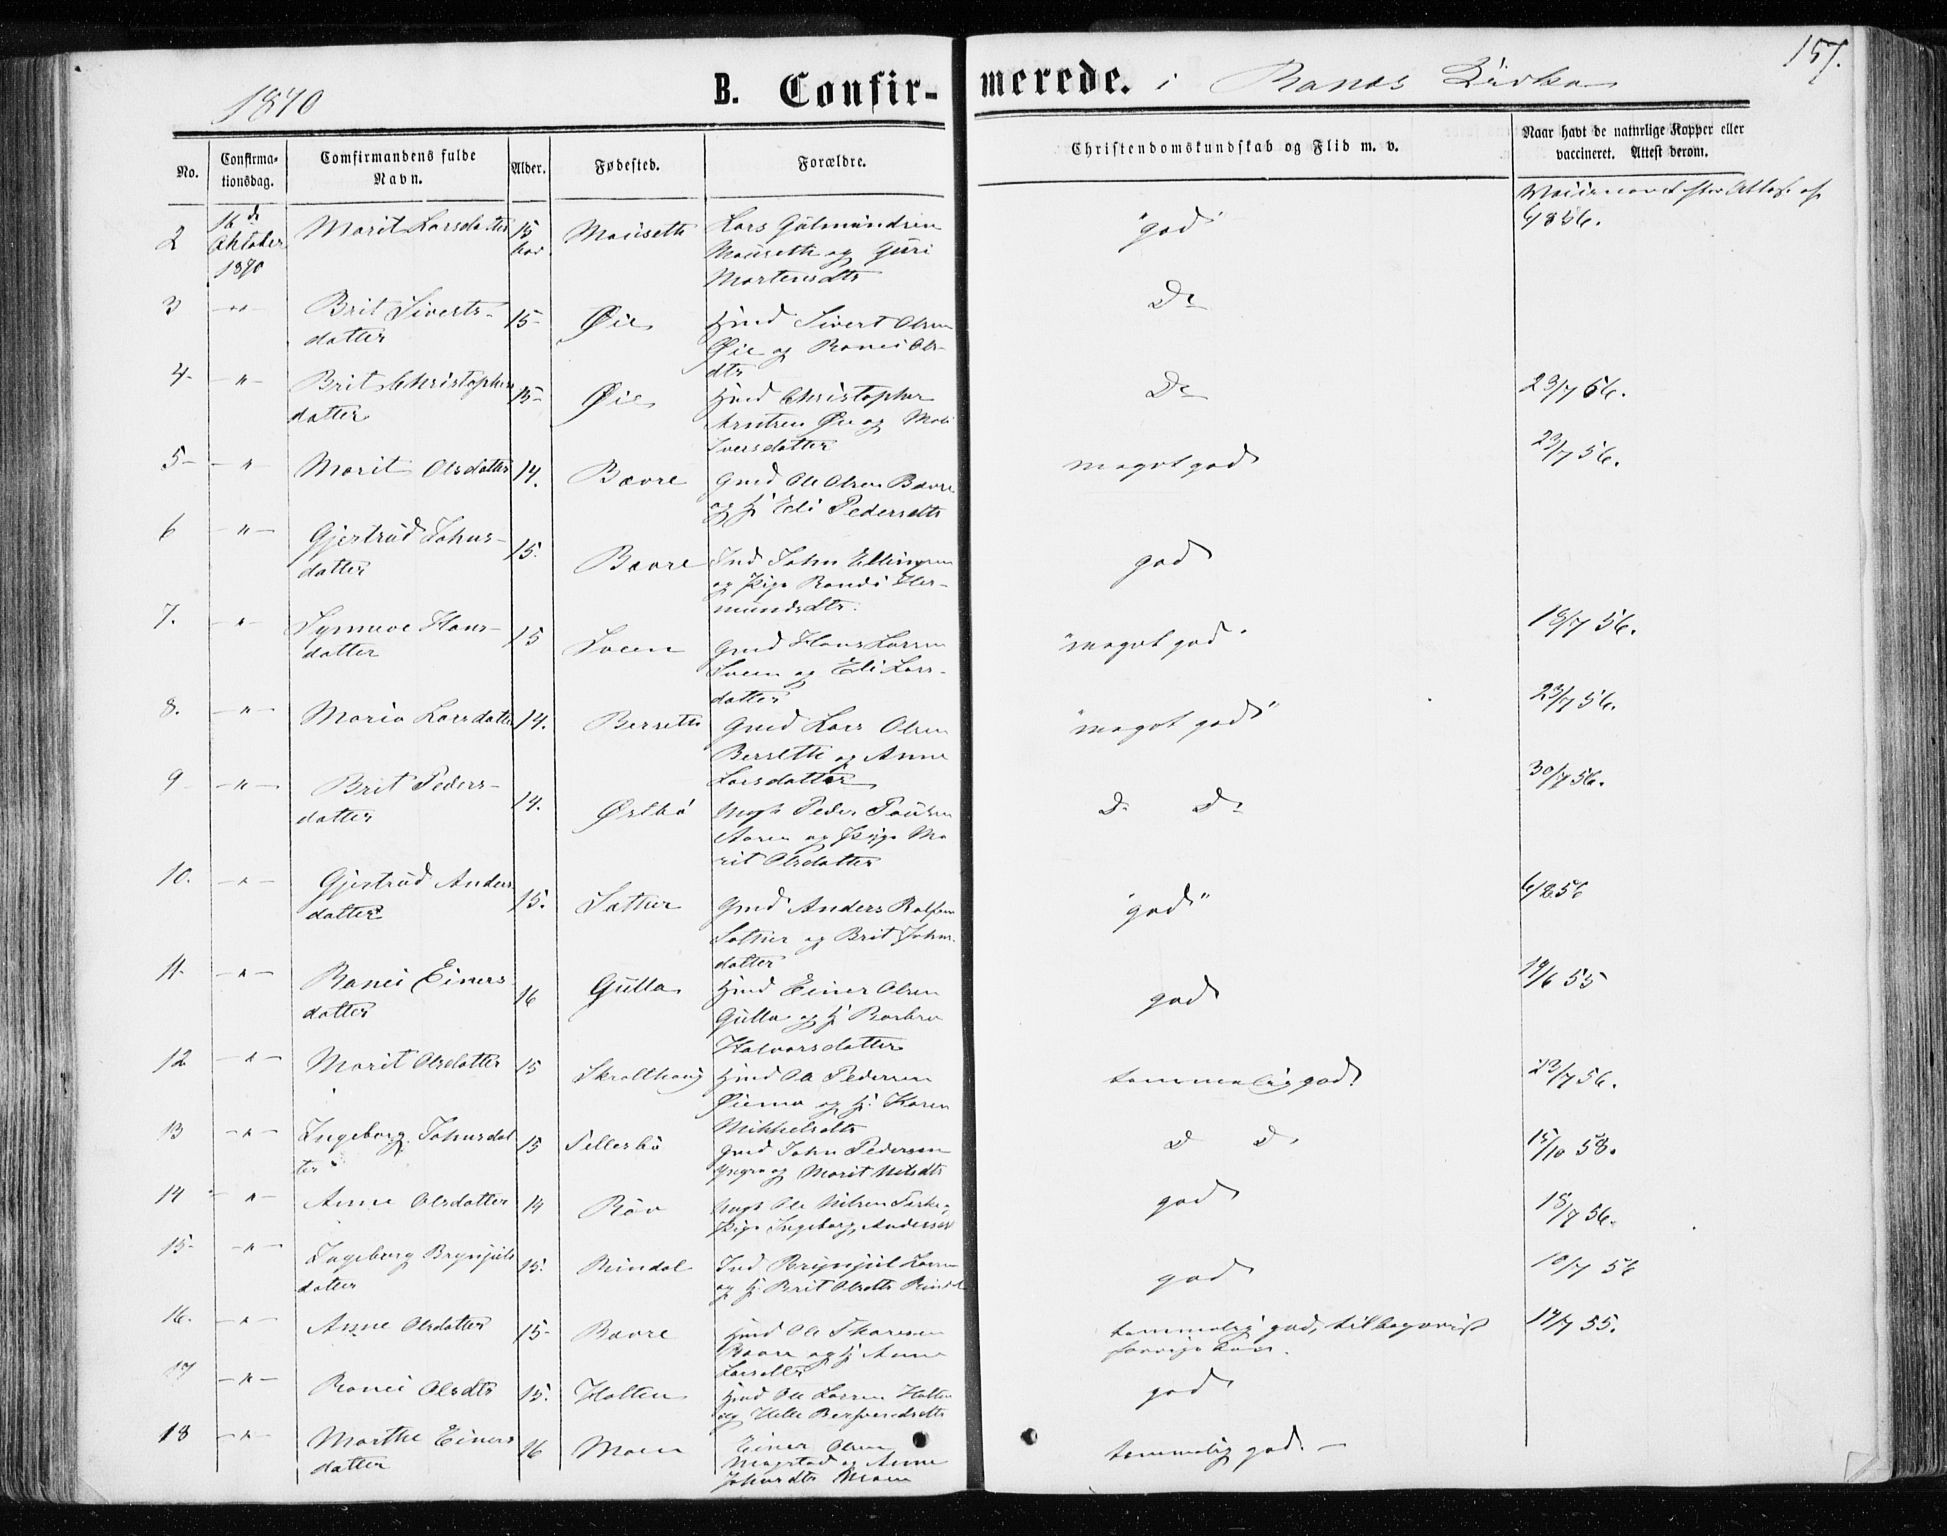 157.
1870
B. Confirmerede. i Ranes Kirke
No.
Confirmationsdag.
Comfirmandens fulde Navn.
Alder.
Fødested.
Forældre.
Christendomskundskab og Flid m. v.
Naar havt de naturlige Kopper eller vaccineret. Attest derom.
2 16de Oktober 1870 Marit Larsdatter 15 Mauseth Lars Gulmundsen Mauseth og Guri Mortensdtr "god" 6/8 56.
3 -"- Brit Siverts-datter 15- Øie Hmd Sivert Olsen Øie og Ranei Ols-dtr Do
4- -"- Brit Christophersdatter 15- Øie Hmd Christopher Arntsen Øie og Mali Iversdatter Do 23/7 56.
5- -"- Marit Olsdatter 14. Bævre Gmd Ole Olsen Bævre og H. Eli Pedersdtr meget god 23/7 56.
6 -"- Gjertrud Johns-datter 15. Bævre Ind John Ellingsen og Pige Randi Her-mundsdtr. god
7. -"- Synneve Hans-datter 15 Sveen Gmd Hans Larsen Sveen og Eli Lars-datter "meget god" 18/7 56.
8. -"- Maria Larsdatter 14. Bersetth Gmd Lars Olsen Bersetth og Anne Larsdatter "meget god" 23/7 56.
9 -"- Brit Peders-datter 14. Østbø Ungk Peder Paulsen Aasen og Pige Ma-rit Olsdatter Do Do 30/7 56.
10. -"- Gjertrud Anders datter 15. Sæther Gmd Anders Rolfsen Sæther og Brit Johns-datter "god" 6/8 56
11- -"- Ranei Einers datter 16 Gulla Hmd Einer Olsen Gulla og H. Barbro Halvorsdatter god 19/6 55
12 -"- Marit Olsdatter 15 Skralthaug Hmd Ole Pedersen Øiemo og H. Karen Mikkelsdtr temmelig god 23/7 56.
13 -"- Ingeborg Johnsdat ter 15 Tellesbø Gmd John Pedersen og Marit Nilsdtr D D. 15/10 58.
14 -"- Anne Olsdatter 14 Røv Ungk Ole Nilsen Pige Ingeborg Andersd god 18/7 56.
15- -"- Ingeborg Brynjuls datter 15. Rindal Ind Brynjul Larsen og H. Brit Olsdtr Rindal god 10/7 56
16. -"- Anne Olsdatter 15- Bævre Hmd Ole Thoresen Bævre og H. Anne Larsdtr temmelig god, tilbagevist forrige Aar. 17/7 55.
17 -"- Ranei Olsdtr 15. Holten Hmd Ole Larsen Holten og god
18 -"- Marthe Einers datter 16 Moen Einer Olsen Magstad og Anne Johnsdtr Moen temmelig god. -